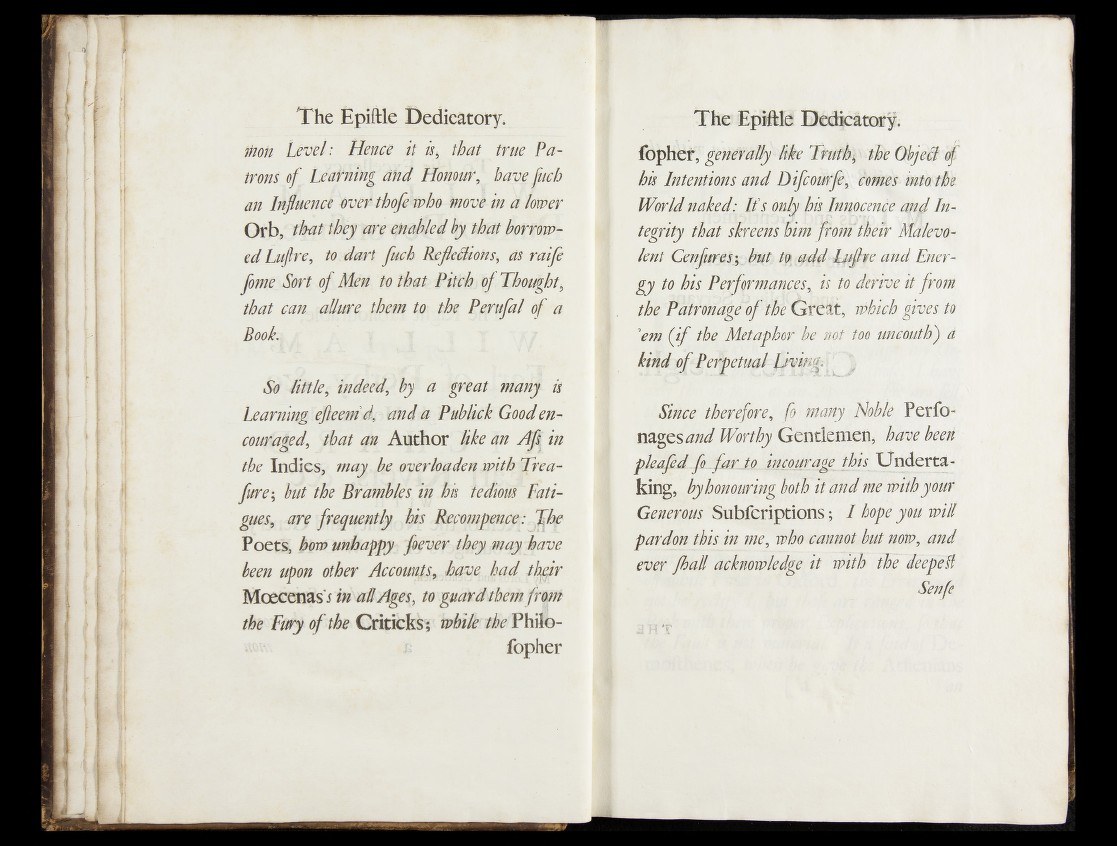 The Epiſtle Dedicatory.
mon Level: Hence it is, that true Pa-
trons of Learning and Honour, have ſuch
an Influence over thoſe who move in a lower
Orb, that they are enabled by that borrow-
ed Luſtre, to dart ſuch Reflections, as raiſe
ſome Sort of Men to that Pitch of Thought,
that can allure them to the Peruſal of a
Book.
So little, indeed, by a great many is
Learning eſteem'd, and a Publick Good en-
couraged, that an Author like an Aſs in
the Indies, may be overloaden with Trea-
ſure; but the Brambles in his tedious Fati-
gues, are frequently his Recompence: The
Poets, how unhappy ſoever they may have
been upon other Accounts, have had their
Mœcenas's in all Ages, to guard them from
the Fury of the Criticks; while the Philo-
ſopher
The Epiſtle Dedicatory.
ſopher, generally like Truth, the Object of
his Intentions and Diſcourſe, comes into the
World naked: It's only his Innocence and In-
tegrity that skreens him from their Malevo-
lent Cenſures; but to add Luſtre and Ener-
gy to his Performances, is to derive it from
the Patronage of the Great, which gives to
'em (if the Metaphor be not too uncouth) a
kind of Perpetual Living.
Since therefore, ſo many Noble Perſo-
nages and Worthy Gentlemen, have been
pleaſed ſo far to incourage this Underta-
king, by honouring both it and me with your
Generous Subſcriptions; I hope you will
pardon this in me, who cannot but now, and
ever ſhall acknowledge it with the deepeſt
Senſe